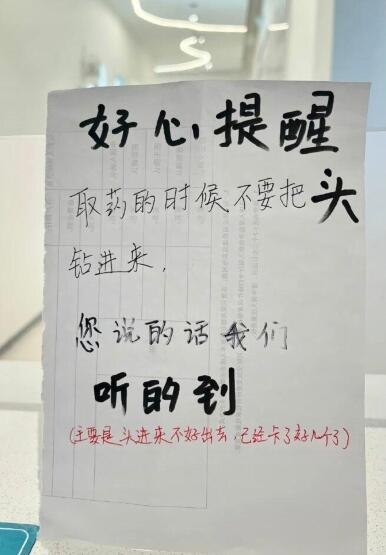 好心提醒
取药的时候不要把头
钻进来.
您说的话我们
听的到
(主要是头进来不好出去,已经卡了好几个了)